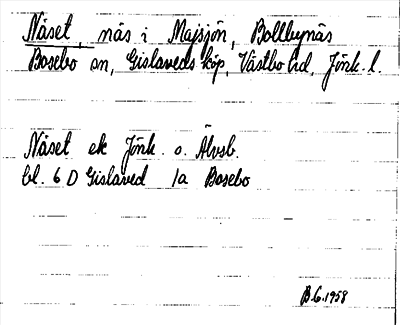 Näset, näs i Majsjön, Bollbynäs
Bosebo sn, Gislaveds köp, Västbo hd, Jönk. l.
Näset ek Jönk. o. Älvsb.
bl. 6 D Gislaved 1a Bosebo
B G. 1958